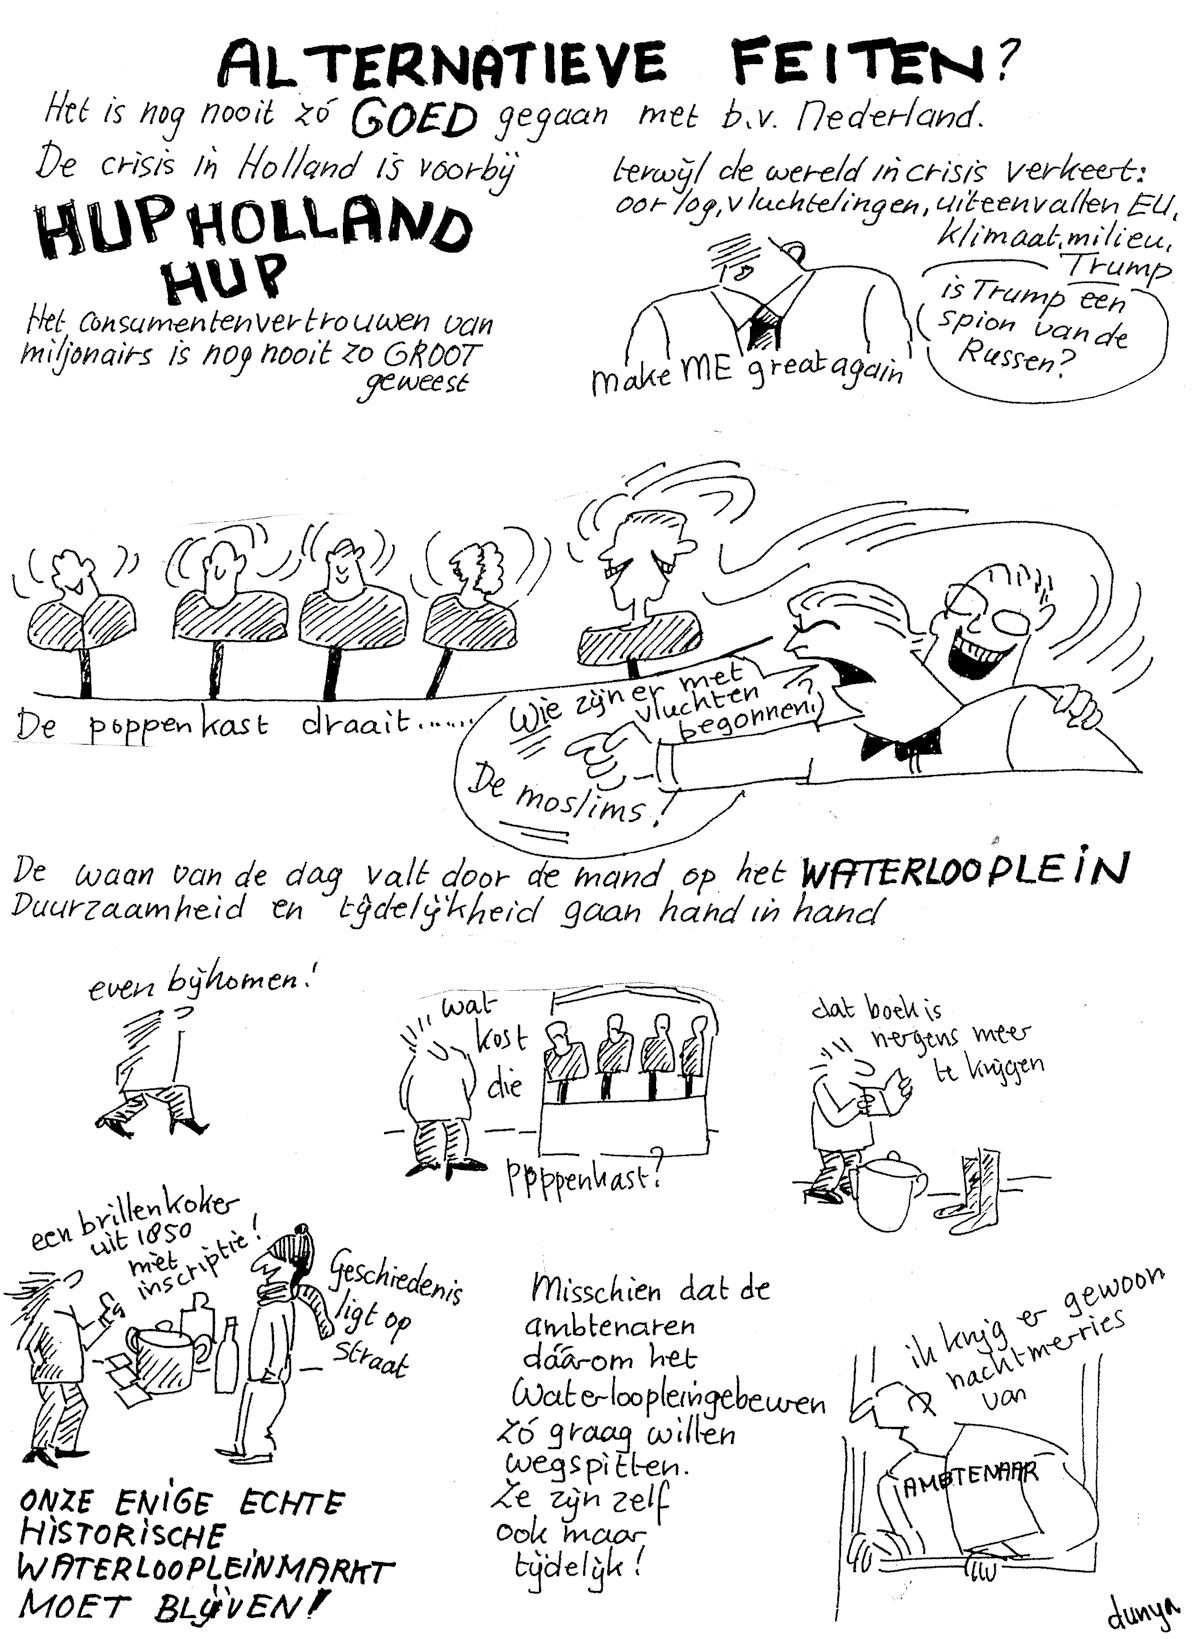 ALTERNATIEVE FEITEN?
Het is nog nooit zó GOED gegaan met b.v. Nederland.
De crisis in Holland is voorbij
HUP HOLLAND
HUP
Het consumentenvertrouwen van
miljonairs is nog nooit zo GROOT
geweest
terwijl de wereld in crisis verkeert:
oorlog, vluchtelingen, uiteenvallen EU,
klimaat, milieu,
Trump
is Trump een
spion van de
Russen?
make ME great again
De poppenkast draait......
Wie zijn er met
vluchten
begonnen?
De moslims!
De waan van de dag valt door de mand op het WATERLOOPLEIN
Duurzaamheid en tijdelijkheid gaan hand in hand
even bijkomen!
wat
kost
die
poppenkast?
dat boek is
nergens meer
te krijgen
een brillenkoker
uit 1850
met
inscriptie!
Geschiedenis
ligt op
straat
Misschien dat de
ambtenaren
dáárom het
Waterloopleingebeuren
zó graag willen
wegspitten.
Ze zijn zelf
ook maar
tijdelijk!
ik krijg er gewoon
nachtmerries
van
AMBTENAAR
ONZE ENIGE ECHTE
HISTORISCHE
WATERLOOPLEINMARKT
MOET BLIJVEN!
dunya